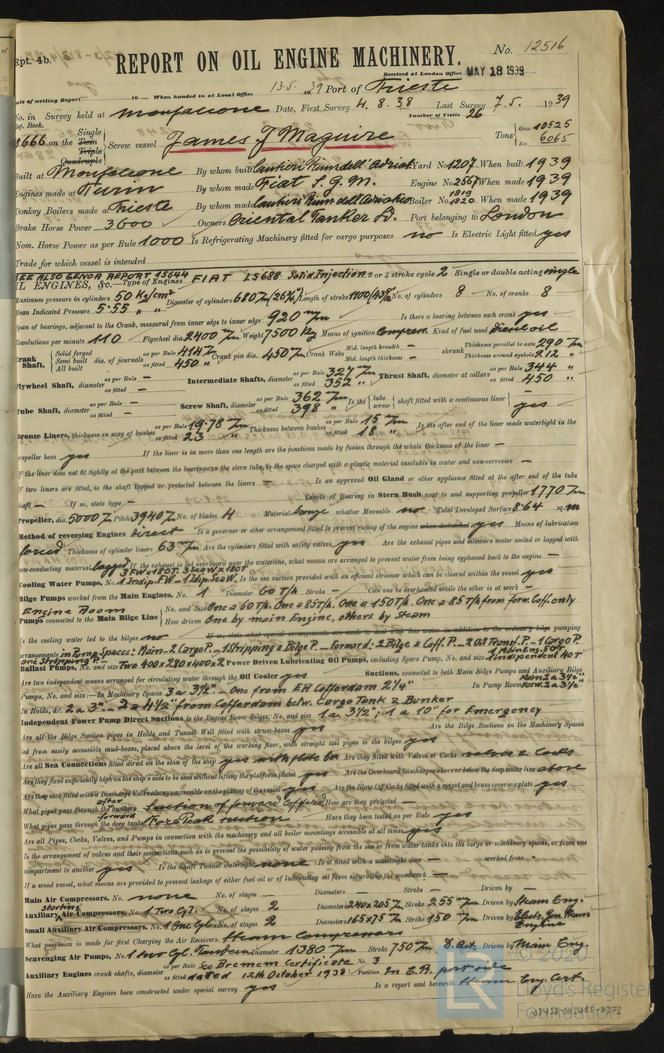 Rpt. 4b.
REPORT ON OIL ENGINE MACHINERY.
No. 12516
Received at London Office MAY 18 1939
Date of writing Report 19 When handed in at Local Office 13.5. 1939 Port of Trieste
No. in Survey held at Monfalcone Date, First Survey 4.8.38 Last Survey 7.5. 1939
Reg. Book. Number of Visits 26
on the Single Twin Triple Quadruple Screw vessel James J Maguire Tons Gross 10525 Net 6065
Built at Monfalcone By whom built Cantieri Riuniti dell Adriatico Yard No. 1207 When built 1939
Engines made at Turin By whom made Fiat S.G.M. Engine No. 2567 When made 1939
Donkey Boilers made at Trieste By whom made Cantieri Riuniti dell Adriatico Boiler No. 1819 1820 When made 1939
Brake Horse Power 3600 Owners Oriental Tanker Ld. Port belonging to London
Nom. Horse Power as per Rule 1000 Is Refrigerating Machinery fitted for cargo purposes no Is Electric Light fitted yes
Trade for which vessel is intended
SEE ALSO GENOA REPORT 15644
OIL ENGINES, &c.—Type of Engines FIAT LS688 Solid Injection 2 or 4 stroke cycle 2 Single or double acting single
Maximum pressure in cylinders 50 Kg/cm² Diameter of cylinders 680 Length of stroke 1100 No. of cylinders 8 No. of cranks 8
Mean Indicated Pressure 5.55 " "
Span of bearings, adjacent to the Crank, measured from inner edge to inner edge 920 Is there a bearing between each crank yes
Revolutions per minute 110 Flywheel dia. 2400 Weight 7500 Kg Means of ignition Compress. Kind of fuel used diesel oil
Crank Shaft, Solid forged Semi built All built dia. of journals as per Rule 414 as fitted 450 Crank pin dia. 450 Crank Webs Mid. length breadth — Mid. length thickness — shrunk Thickness parallel to axis 290 Thickness around eyehole 212
Flywheel Shaft, diameter as per Rule — as fitted — Intermediate Shafts, diameter as per Rule 327 as fitted 352 Thrust Shaft, diameter at collars as per Rule 344 as fitted 450
Tube Shaft, diameter as per Rule — as fitted — Screw Shaft, diameter as per Rule 362 as fitted 398 Is the tube screw shaft fitted with a continuous liner yes
Bronze Liners, thickness in way of bushes as per Rule 19.78 as fitted 23 Thickness between bushes as per Rule 15 as fitted 18 Is the after end of the liner made watertight in the
propeller boss yes If the liner is in more than one length are the junctions made by fusion through the whole thickness of the liner —
If the liner does not fit tightly at the part between the bearings in the stern tube, is the space charged with a plastic material insoluble in water and non-corrosive —
If two liners are fitted, is the shaft lapped or protected between the liners — Is an approved Oil Gland or other appliance fitted at the after end of the tube
shaft — If so, state type — Length of Bearing in Stern Bush next to and supporting propeller 1770
Propeller, dia. 5000 Pitch 3940 No. of blades 4 Material bronze whether Moveable no Total Developed Surface 8.64 sq. m
Method of reversing Engines direct Is a governor or other arrangement fitted to prevent racing of the engine yes Means of lubrication
forced Thickness of cylinder liners 63 Are the cylinders fitted with safety valves yes Are the exhaust pipes and silencers water cooled or lagged with
non-conducting material lagged If the exhaust is led overboard near the waterline, what means are arranged to prevent water from being syphoned back to the engine —
Cooling Water Pumps, No. 3 FW x 180T. 3 Sea W x 180T 1 Indip. FW – 1 Idip Sea W. Is the sea suction provided with an efficient strainer which can be cleared within the vessel yes
Bilge Pumps worked from the Main Engines, No. 1 Diameter 60 T/h Stroke — Can one be overhauled while the other is at work —
Pumps connected to the Main Bilge Line Engine Room No. and Size One a 60 T/h. One a 85 T/h. One a 150 T/h. One a 85 T/h from forw. Coff. only
How driven One by main Engine, others by steam
Is the cooling water led to the bilges no
arrangements in Pump Spaces: Main – 2 Cargo P. – 1 Stripping & Bilge P. – Forward: 2 Bilge & Coff. P. – 2 Oil Transf. P. – 1 Cargo P. one Stripping P.
Ballast Pumps, No. and size Two 400x280x400x2 Power Driven Lubricating Oil Pumps, including Spare Pump, No. and size 1 Main Eng. 50T 1 independent 40T
Are two independent means arranged for circulating water through the Oil Cooler yes Suctions, connected to both Main Bilge Pumps and Auxiliary Bilge
Pumps, No. and size:—In Machinery Spaces 3 a 3½" – One from ER Cofferdam 2¼" In Pump Room Main 2 a 3½" Forw. 2 a 3½"
In Holds, &c. 2 a 3" – 2 a 4½" from Cofferdam betw. Cargo Tank & Bunker
Independent Power Pump Direct Suctions to the Engine Room Bilges, No. and size 1 a 3½"; 1 a 10" for Emergency
Are all the Bilge Suction pipes in Holds and Tunnel Well fitted with strum-boxes yes Are the Bilge Suctions in the Machinery Spaces
led from easily accessible mud-boxes, placed above the level of the working floor, with straight tail pipes to the bilges yes
Are all Sea Connections fitted direct on the skin of the ship yes with plate box Are they fitted with Valves or Cocks valves & Cocks
Are they fixed sufficiently high on the ship's side to be seen without lifting the platform plates yes Are the Overboard Discharges above or below the deep water line above
Are they each fitted with a Discharge Valve always accessible on the plating of the vessel yes Are the Blow Off Cocks fitted with a spigot and brass covering plate yes
What pipes pass through the bunkers after Suction of forward Cofferd. How are they protected —
What pipes pass through the deep tanks forward Fore Peak suction Have they been tested as per Rule yes
Are all Pipes, Cocks, Valves, and Pumps in connection with the machinery and all boiler mountings accessible at all times yes
Is the arrangement of valves and their connections such as to prevent the possibility of water passing from the sea or from water tanks into the cargo or machinery spaces, or from one
compartment to another yes Is the Shaft Tunnel watertight none Is it fitted with a watertight door — worked from —
If a wood vessel, what means are provided to prevent leakage of either fuel oil or of lubricating oil from saturating the woodwork —
Main Air Compressors, No. none No. of stages — Diameters — Stroke — Driven by —
Auxiliary starting Air Compressors, No. 1 Two Cyl. No. of stages 2 Diameters 240x205 Stroke 255 Driven by Steam Eng.
Small Auxiliary Air Compressors, No. 1 One Cyl. No. of stages 2 Diameters 165x75 Stroke 150 Driven by Electr. Gen. Steam Engine
What provision is made for first Charging the Air Receivers Steam Compressors
Scavenging Air Pumps, No. 1 two Cyl. Tandem Diameter 1380 Stroke 750 D. Act Driven by Main Eng.
Auxiliary Engines crank shafts, diameter as per Rule as fitted See Bremen Certificate No. 3 dated 12th October 1938 Position In E.R. port side
Have the Auxiliary Engines been constructed under special survey yes Is a report sent herewith Steam Eng. Cert
© 2020
LR
Lloyd's Register
Foundation